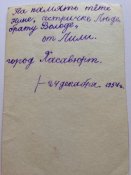 На память тёте
Нине, сестричке Люде,
брату Володе,
от Лили.
город Хасавюрт.
24 декабря 1954г.